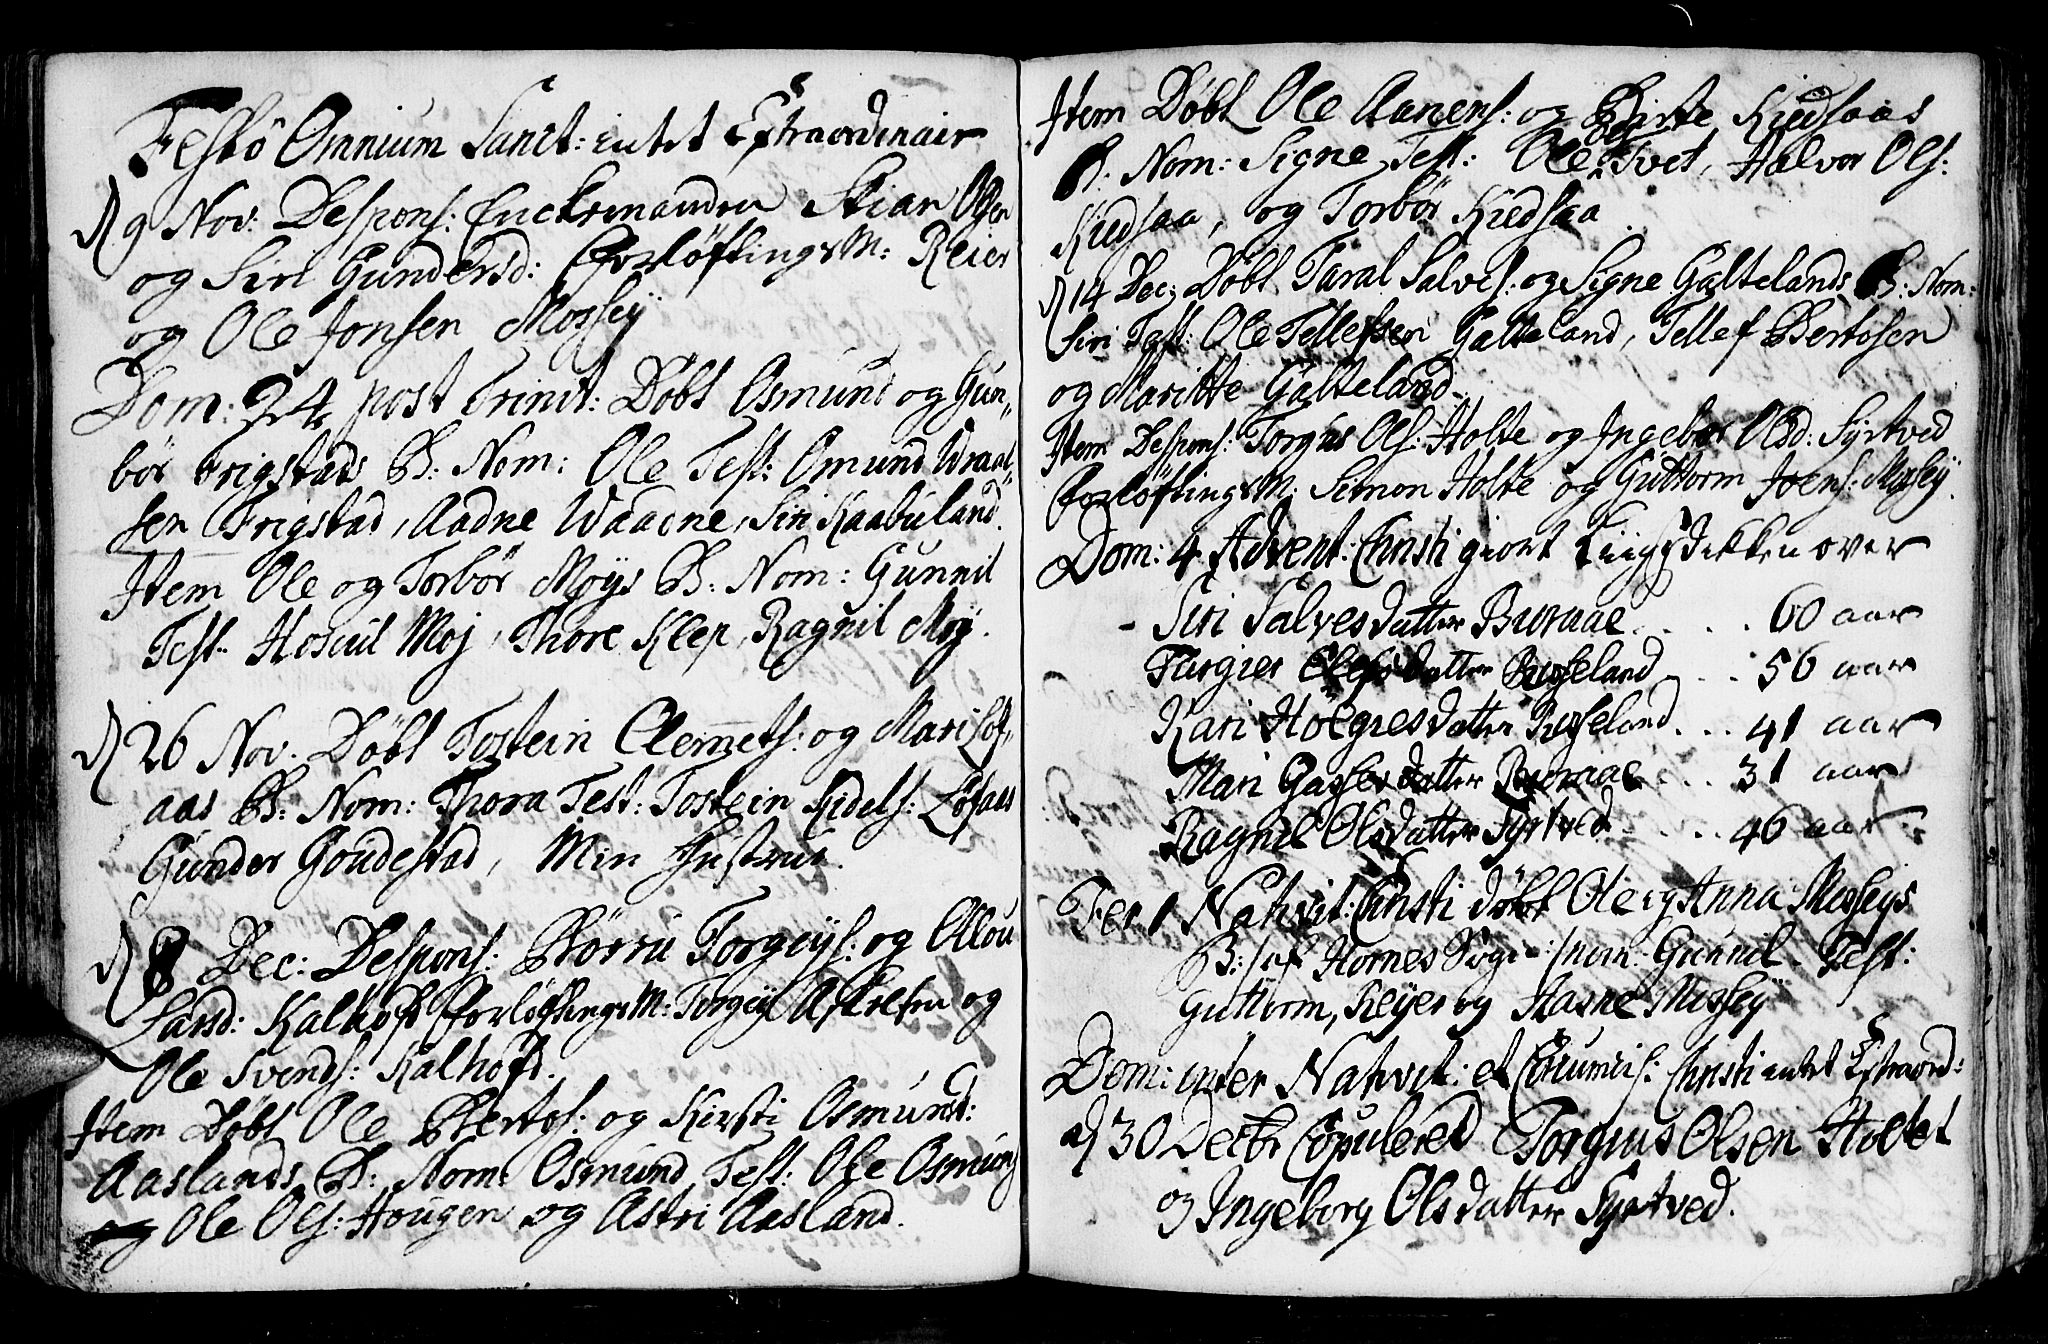 Festô Omnium Sanct: intet Extraordinair
d 9 Nov: Despons: Enckemanden Stian Olsen
og Siri Gundersd: Forløftings M: Reier
og Ole Jonsen Mossey
Dom: 24 post Trinit: Døbt Osmund og Gun,,
bør Frigstads B: Nom: Ole Test: Omund Wraal,,
sen Frigstad, Aadne Waadne, Siri Kaabuland.
Item Ole og Torbør Moys B: Nom: Gunnil
Test: Hoskil Moj, Thore Klep, Ragnil Moy.
d 26 Nov: Døbt Tostein Clemets: og Mari Løf,,
aas B: Nom: Thora Test: Tostein Kidels: Løfaas
Gunder Goudestad, Min Hustrue.
d 8 Dec: Despons: Børru Torgeys: og Allou
Larsd: Kalhofd Forløftings M: Torgey Askelsen og
Ole Svends: Kalhofd.
Item Døbt Ole Bertos: og Kirsti Osmund:
Aaslands B: Nom: Osmund Test: Ole Osmunds
og Ole Ols: Hougen og Astri Aasland.
Item Døbt Ole Aanens: og Birte Kiedsaas
B: Nom: Signe, Test: Ole Tvet, Halvor Ols:
Kiedsaa, og Torbør Kiedsaa.
d 14 Dec: Døbt Taral Salves: og Signe Galtelands B: Nom:
Siri Test: Ole Tellefsen Galteland, Tellef Bertosen
og Maritte Galteland.
Item Despons: Torgus Ols: Holte og Ingebor Olsd: Syrtved
Forløftings M: Simon Holte og Guttorm Joens: Mossey.
Dom: 4 Advent: Christi giort over
- Siri Salvesdatter 60 aar
Turgier datter 56 aar
Kari Hølgresdatter 41 aar
Mari datter 31 aar
Ragnil Olsdatter Syrtved 46 aar
Fer 1 Nativit: Christi døbt Ole og Anna Mosseys
B: /af Hornes Sogn:/ nom: Gunnil. Test:
Guttorm, Reyer og Aasne Mossey
Dom: inter Nativit: et Circumcis: Christi intet Extraord:
d 30 Decbr Copulered Torgius Olsen Holtet
og Ingeborg Olsdatter Syrtved.